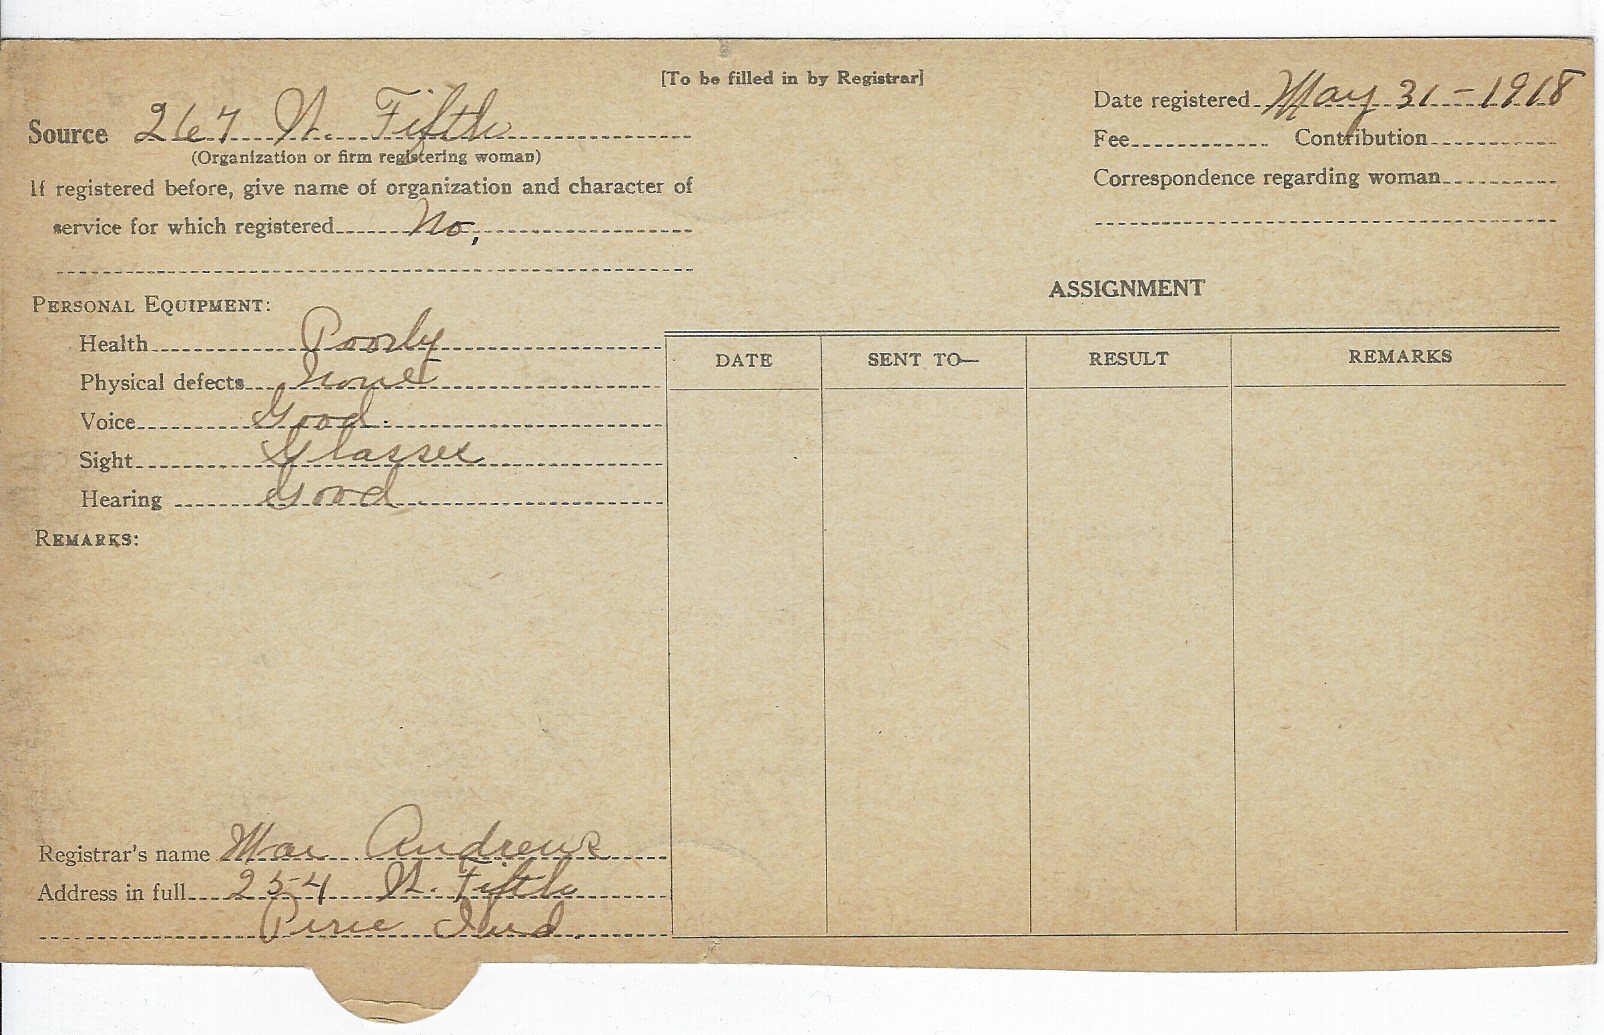 [To be filled in by Registrar]
Source 267 N. Fifth
(Organization or firm registering woman)
If registered before, give name of organization and character of
service for which registered No,
Date registered May 31-1918
Fee Contribution
Correspondence regarding woman
PERSONAL EQUIPMENT:
Health Poorly
Physical defects None
Voice Good.
Sight Glasses
Hearing Good
REMARKS:
Registrar's name Mae Andrews
Address in full 254 N. Fifth
Peru Ind.
ASSIGNMENT
DATE SENT TO— RESULT REMARKS